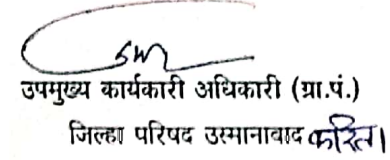 उपमुख्य कार्यकारी अधिकारी (ग्रा.पं.)
जिल्हा परिषद उस्मानाबाद करिता